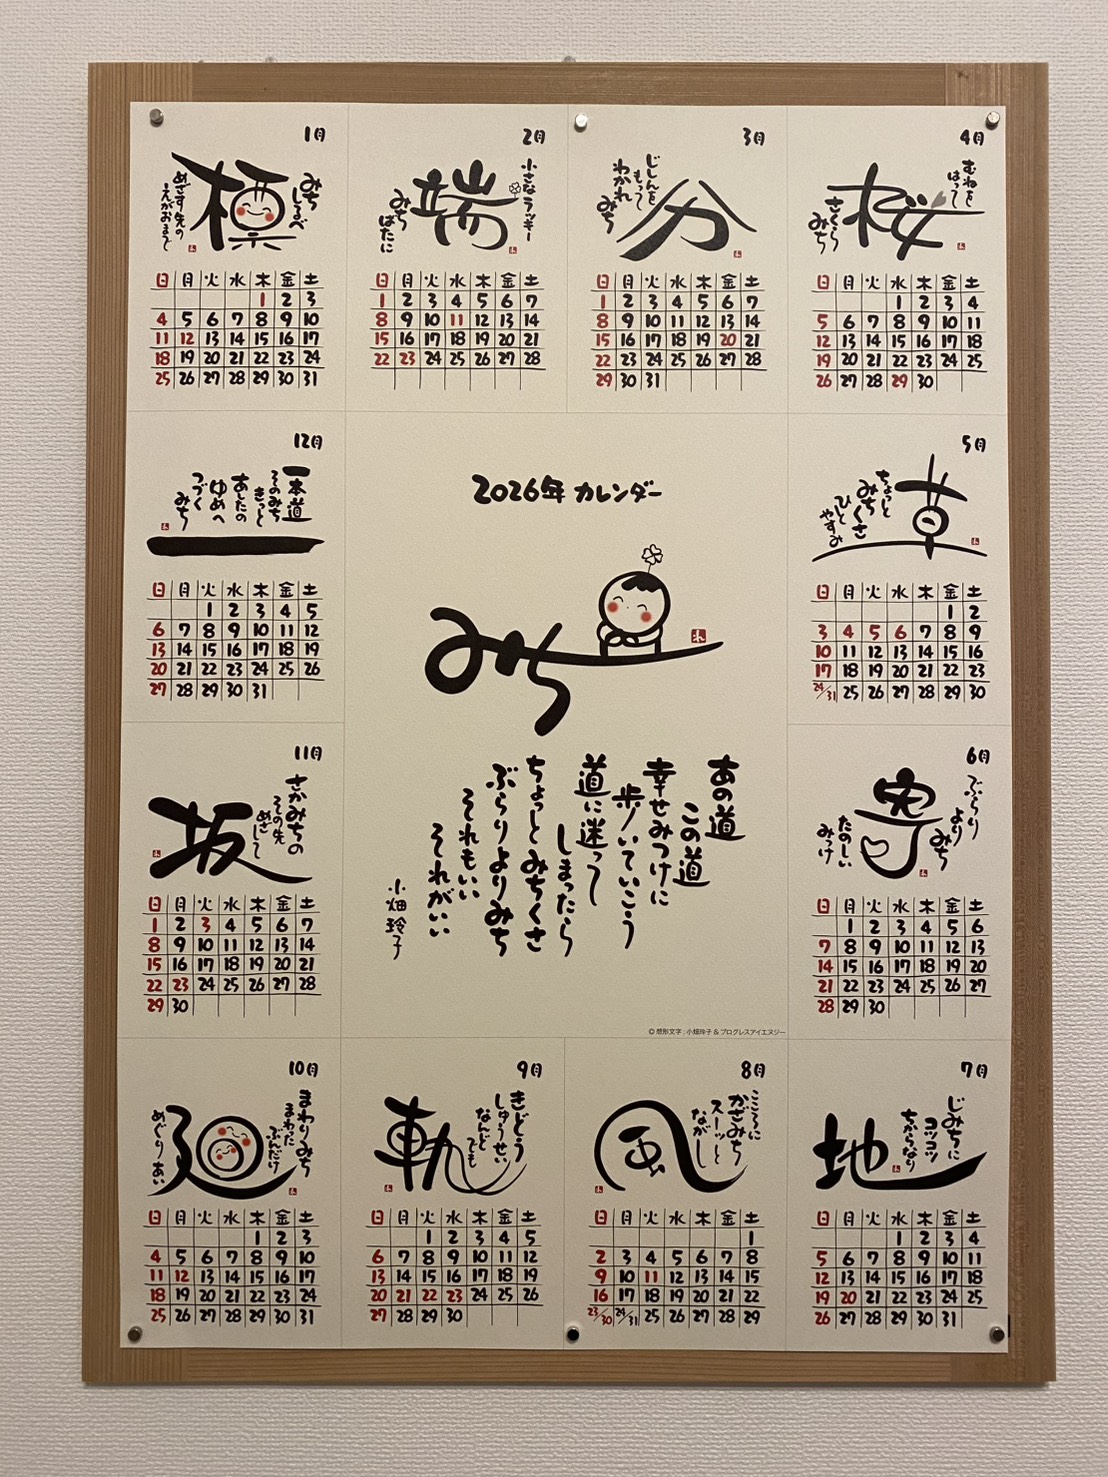 1月
標
みち
しるべ
めざす先の
えがおまで
日 月 火 水 木 金 土
1 2 3
4 5 6 7 8 9 10
11 12 13 14 15 16 17
18 19 20 21 22 23 24
25 26 27 28 29 30 31
2月
小さなラッキー
端
みち
ばたに
日 月 火 水 木 金 土
1 2 3 4 5 6 7
8 9 10 11 12 13 14
15 16 17 18 19 20 21
22 23 24 25 26 27 28
3月
じしんを
もって
わかれ
みち
分
日 月 火 水 木 金 土
1 2 3 4 5 6 7
8 9 10 11 12 13 14
15 16 17 18 19 20 21
22 23 24 25 26 27 28
29 30 31
4月
むねを
はって
桜
さくら
みち
日 月 火 水 木 金 土
1 2 3 4
5 6 7 8 9 10 11
12 13 14 15 16 17 18
19 20 21 22 23 24 25
26 27 28 29 30
5月
草
ちょっと
みちくさ
ひと
やすみ
日 月 火 水 木 金 土
1 2
3 4 5 6 7 8 9
10 11 12 13 14 15 16
17 18 19 20 21 22 23
24/31 25 26 27 28 29 30
6月
ぶらり
より
みち
寄
たのしい
みつけ
日 月 火 水 木 金 土
1 2 3 4 5 6
7 8 9 10 11 12 13
14 15 16 17 18 19 20
21 22 23 24 25 26 27
28 29 30
7月
じみちに
コツコツ
ちからなり
地
日 月 火 水 木 金 土
1 2 3 4
5 6 7 8 9 10 11
12 13 14 15 16 17 18
19 20 21 22 23 24 25
26 27 28 29 30 31
8月
こころに
かざみち
スーッと
ながし
風
日 月 火 水 木 金 土
1
2 3 4 5 6 7 8
9 10 11 12 13 14 15
16 17 18 19 20 21 22
23/30 24/31 25 26 27 28 29
9月
きどう
しゅうせい
なんど
でも
軌
日 月 火 水 木 金 土
1 2 3 4 5
6 7 8 9 10 11 12
13 14 15 16 17 18 19
20 21 22 23 24 25 26
27 28 29 30
10月
まわりみち
まわった
ぶんだけ
廻
めぐりあい
日 月 火 水 木 金 土
1 2 3
4 5 6 7 8 9 10
11 12 13 14 15 16 17
18 19 20 21 22 23 24
25 26 27 28 29 30 31
11月
さかみちの
その先
めざ
して
坂
日 月 火 水 木 金 土
1 2 3 4 5 6 7
8 9 10 11 12 13 14
15 16 17 18 19 20 21
22 23 24 25 26 27 28
29 30
12月
一本道
そのみち
きっと
あしたの
ゆめへ
つづく
みち
日 月 火 水 木 金 土
1 2 3 4 5
6 7 8 9 10 11 12
13 14 15 16 17 18 19
20 21 22 23 24 25 26
27 28 29 30 31
2026年 カレンダー
みち
あの道
この道
幸せみつけに
歩いていこう
道に迷って
しまったら
ちょっとみちくさ
ぶらりよりみち
それもいい
それがいい
小畑 玲子
© 想形文字：小畑玲子 & プログレスアイエヌジー